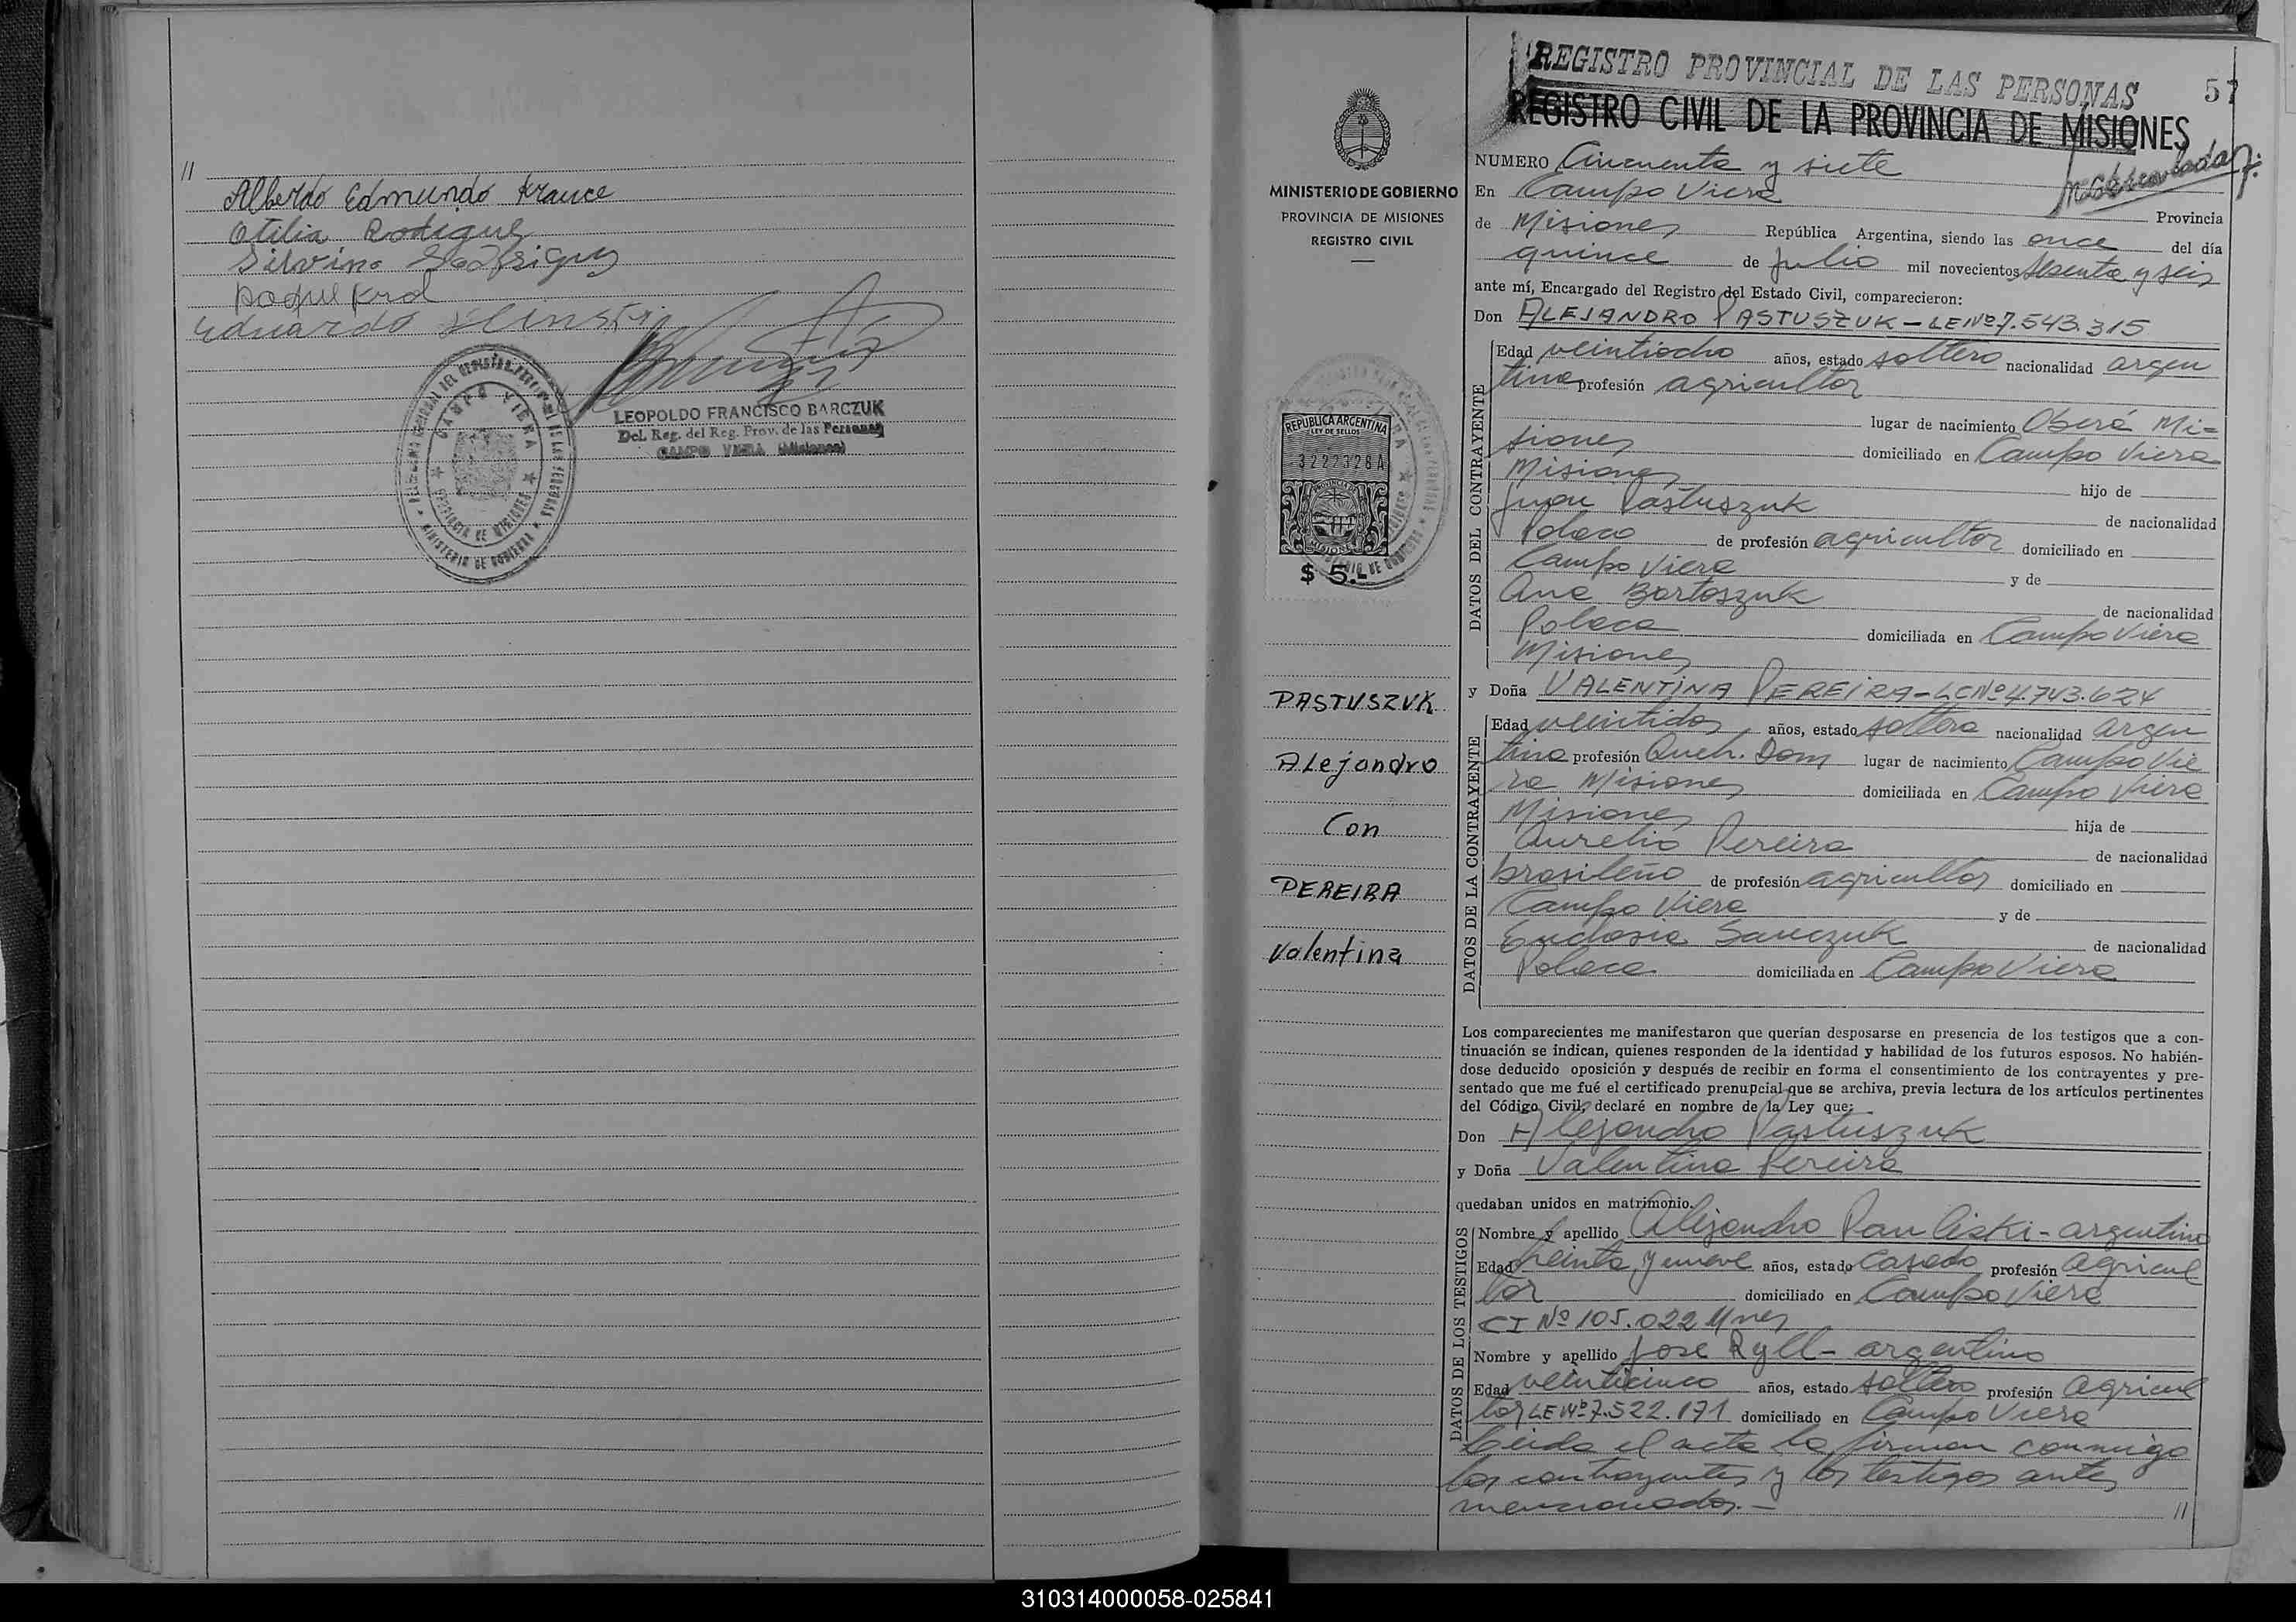 //
Alberdo Edmundo Krauce
Otilia Rodriguez
Silvino
Raquel Krol
Eduardo
LEOPOLDO FRANCISCO BARCZUK
Del. Reg. del Reg. Prov. de las Personas
CAMPO VIERA (Misiones)
CAMPO VIERA
PROVINCIA DE MISIONES
MINISTERIO DE GOBIERNO
MINISTERIO DE GOBIERNO
PROVINCIA DE MISIONES
REGISTRO CIVIL
REPUBLICA ARGENTINA
LEY DE SELLOS
3222328A
MISIONES
$ 5.-
PASTUSZUK
Alejandro
Con
PEREIRA
Valentina
REGISTRO PROVINCIAL DE LAS PERSONAS
57
REGISTRO CIVIL DE LA PROVINCIA DE MISIONES
NUMERO Cincuenta y siete
En Campo Viera
Provincia
de Misiones República Argentina, siendo las once del día
quince de Julio mil novecientos sesenta y seis
ante mí, Encargado del Registro del Estado Civil, comparecieron:
Don ALEJANDRO PASTUSZUK - LE Nº 7.543.315
DATOS DEL CONTRAYENTE
Edad veintiocho años, estado soltero nacionalidad argen
tina profesión agricultor
lugar de nacimiento Oberá Mi=
siones domiciliado en Campo Viera
Misiones hijo de
Juan Pastuszuk de nacionalidad
Polaco de profesión agricultor domiciliado en
Campo Viera y de
Ana Bortoszuk de nacionalidad
Polaca domiciliada en Campo Viera
Misiones
y Doña VALENTINA PEREIRA - LC Nº 4.743.624
DATOS DE LA CONTRAYENTE
Edad veintidos años, estado soltera nacionalidad argen
tina profesión Queh. Dom lugar de nacimiento Campo Vie
ra Misiones domiciliada en Campo Viera
Misiones hija de
Aurelio Pereira de nacionalidad
brasileño de profesión agricultor domiciliado en
Campo Viera y de
Eudosia Sauczuk de nacionalidad
Polaca domiciliada en Campo Viera
Los comparecientes me manifestaron que querían desposarse en presencia de los testigos que a con-
tinuación se indican, quienes responden de la identidad y habilidad de los futuros esposos. No habién-
dose deducido oposición y después de recibir en forma el consentimiento de los contrayentes y pre-
sentado que me fué el certificado prenupcial que se archiva, previa lectura de los artículos pertinentes
del Código Civil, declaré en nombre de la Ley que:
Don Alejandro Pastuszuk
y Doña Valentina Pereira
quedaban unidos en matrimonio.
DATOS DE LOS TESTIGOS
Nombre y apellido Alejandro Pauliski - argentino
Edad treinta y nueve años, estado casado profesión Agricul
tor domiciliado en Campo Viera
CI Nº 105.022 Mnes
Nombre y apellido Jose Ryll - argentino
Edad veinticinco años, estado soltero profesión Agricul
tor LE Nº 7.522.171 domiciliado en Campo Viera
Leida el acta la firman conmigo
los contrayentes y los testigos antes
mencionados.-
//
310314000058-025841